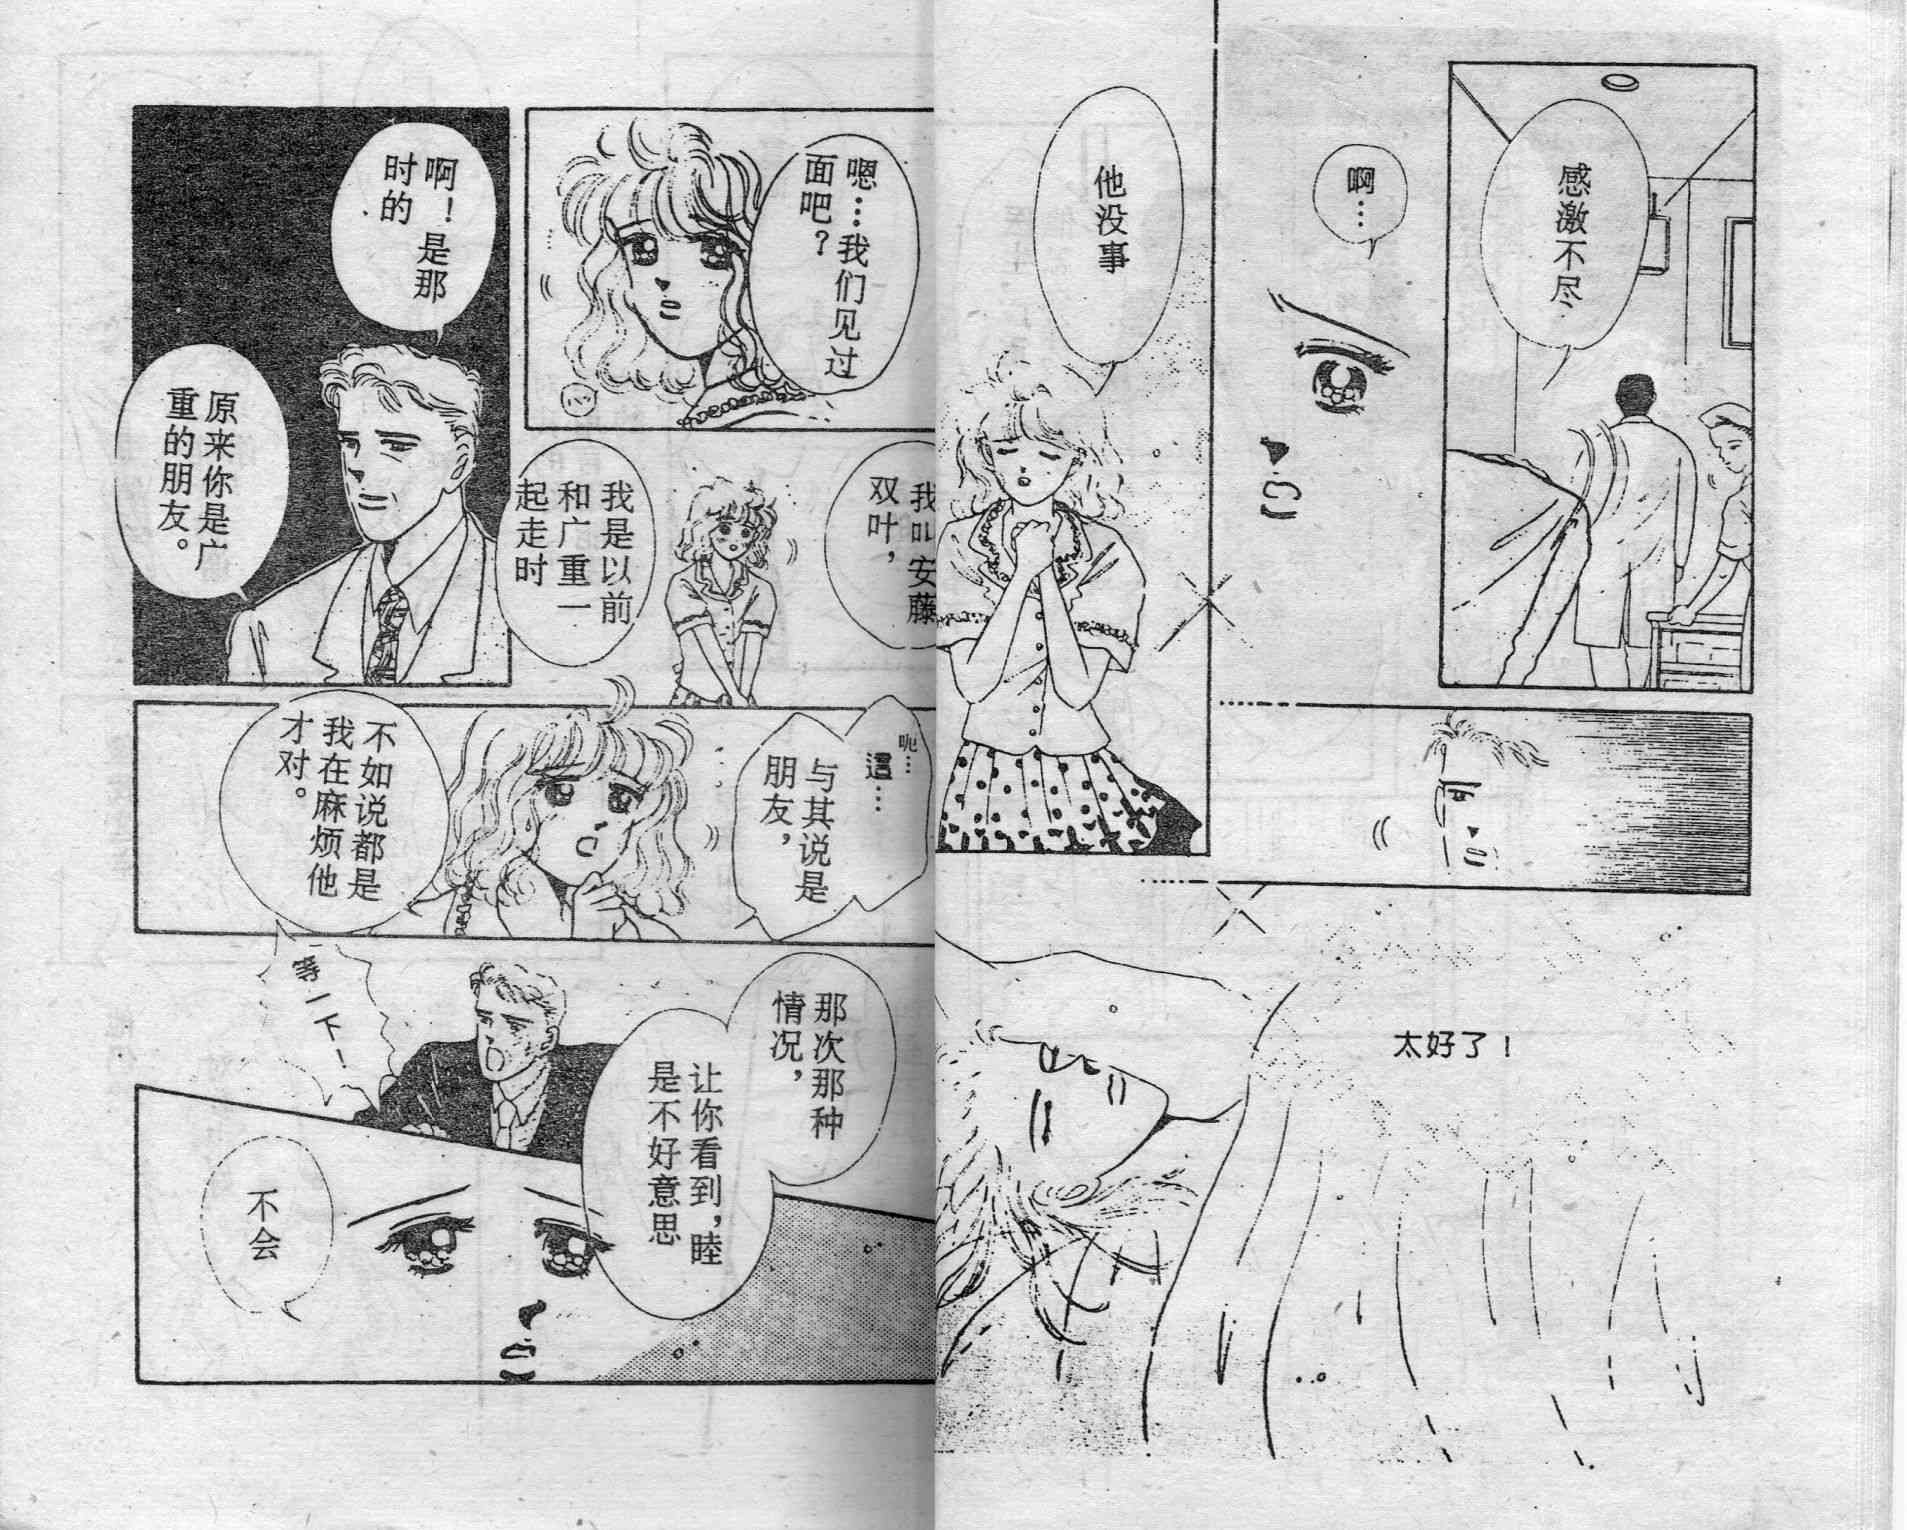 感激不尽
啊…
他没事
太好了！
嗯…我们见过
面吧？
啊！是那
时的
原来你是广
重的朋友。
我叫安藤
双叶，
我是以前
和广重一
起走时
呃…
這…
与其说是
朋友，
不如说都是
我在麻烦他
才对。
等一下！
那次那种
情况，
让你看到，睦
是不好意思
不会